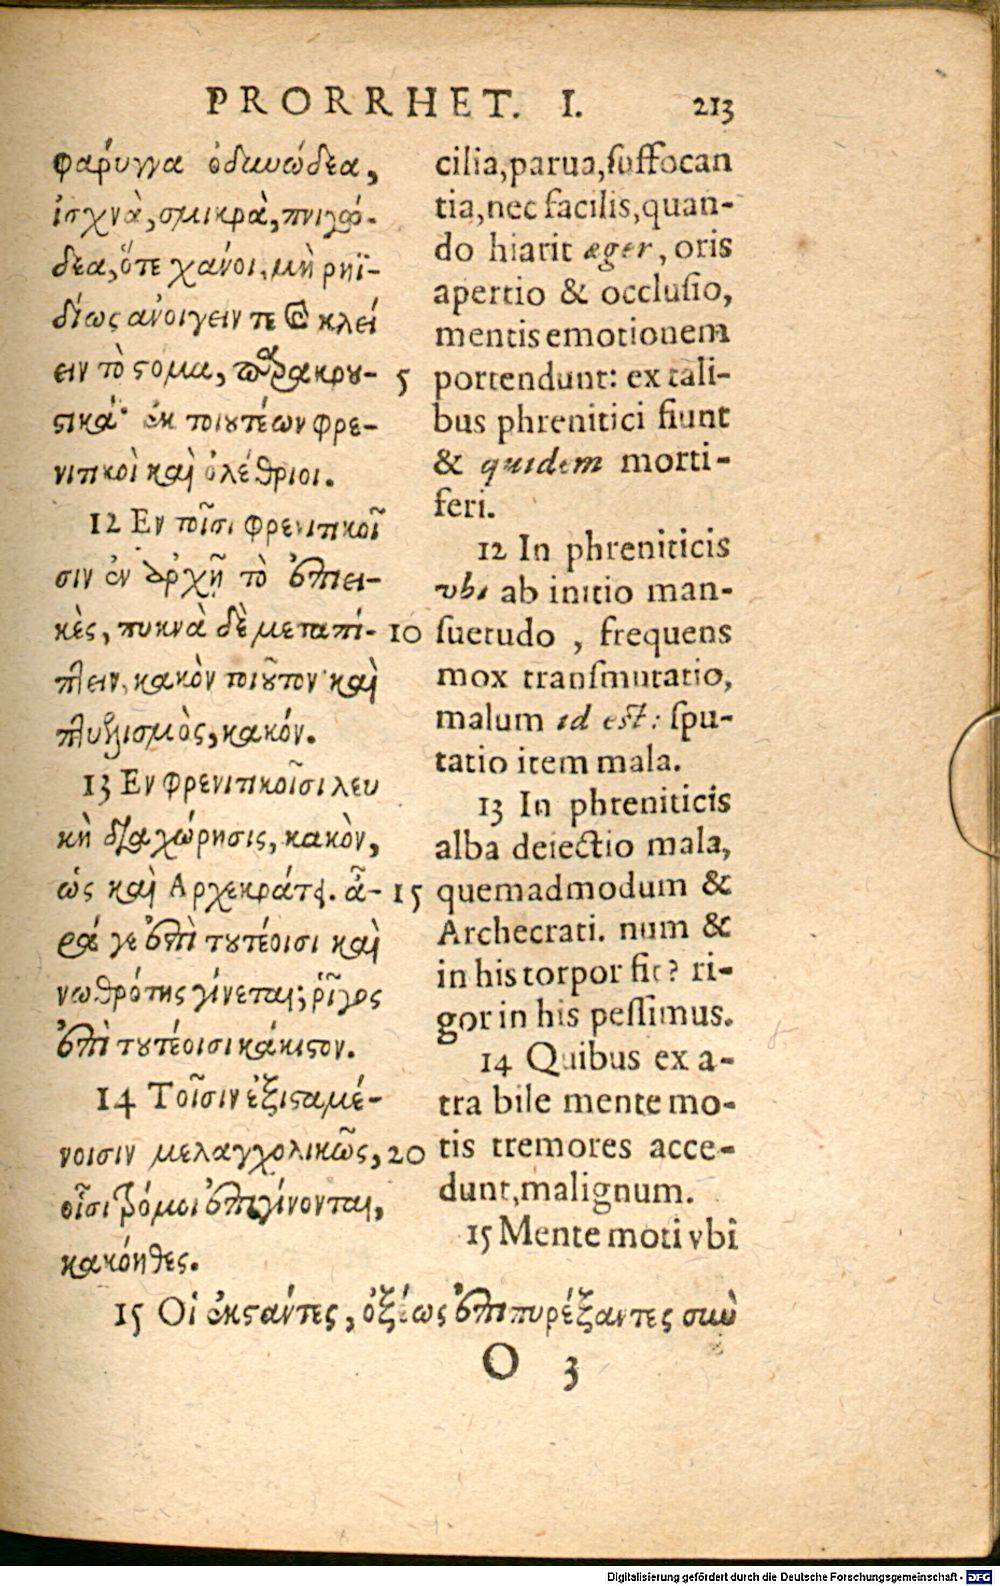 PRORRHET. I. 213
φαρυγγα ὀδυνώδεα,
ἰσχνὰ, σμικρὰ, πνιγώ-
δεα, ὅτε χάνοι, μὴ ρηϊ-
δίως ἀνοιγειν τε καὶ κλεί
ειν τὸ στομα, παρακρου-
στικά· ἐκ τοιουτέων φρε-
νιτικοὶ καὶ ὀλέθριοι.
12 Εν τοῖσι φρενιτικοῖ
σιν ἐν ἀρχῇ τὸ ἐπιει-
κὲς, πυκνὰ δὲ μεταπί-
πτειν, κακὸν τοιοῦτον καὶ
πτυελισμὸς, κακόν.
13 Εν φρενιτικοῖσι λευ
κὴ διαχώρησις, κακὸν,
ὡς καὶ Αρχεκράτει. ἆ-
ρά γε ἐπὶ τουτέοισι καὶ
νωθρότης γίνεται; ῥῖγος
ἐπὶ τουτέοισι κάκιστον.
14 Τοῖσιν ἐξισταμέ-
νοισιν μελαγχολικῶς,
οἷσι τρόμοι ἐπιγίνονται,
κακόηθες.
5
10
15
20
cilia, parua, suffocan
tia, nec facilis, quan-
do hiarit æger, oris
apertio & occlusio,
mentis emotionem
portendunt: ex tali-
bus phrenitici fiunt
& quidem morti-
feri.
12 In phreniticis
vbi ab initio man-
suetudo , frequens
mox transmutatio,
malum id est: spu-
tatio item mala.
13 In phreniticis
alba deiectio mala,
quemadmodum &
Archecrati. num &
in his torpor fit? ri-
gor in his pessimus.
14 Quibus ex a-
tra bile mente mo-
tis tremores acce-
dunt, malignum.
15 Mente moti vbi
15 Οἱ ἐκστάντες, ὀξέως ἐπιπυρέξαντες σιω
O 3
Digitalisierung gefördert durch die Deutsche Forschungsgemeinschaft - DFG